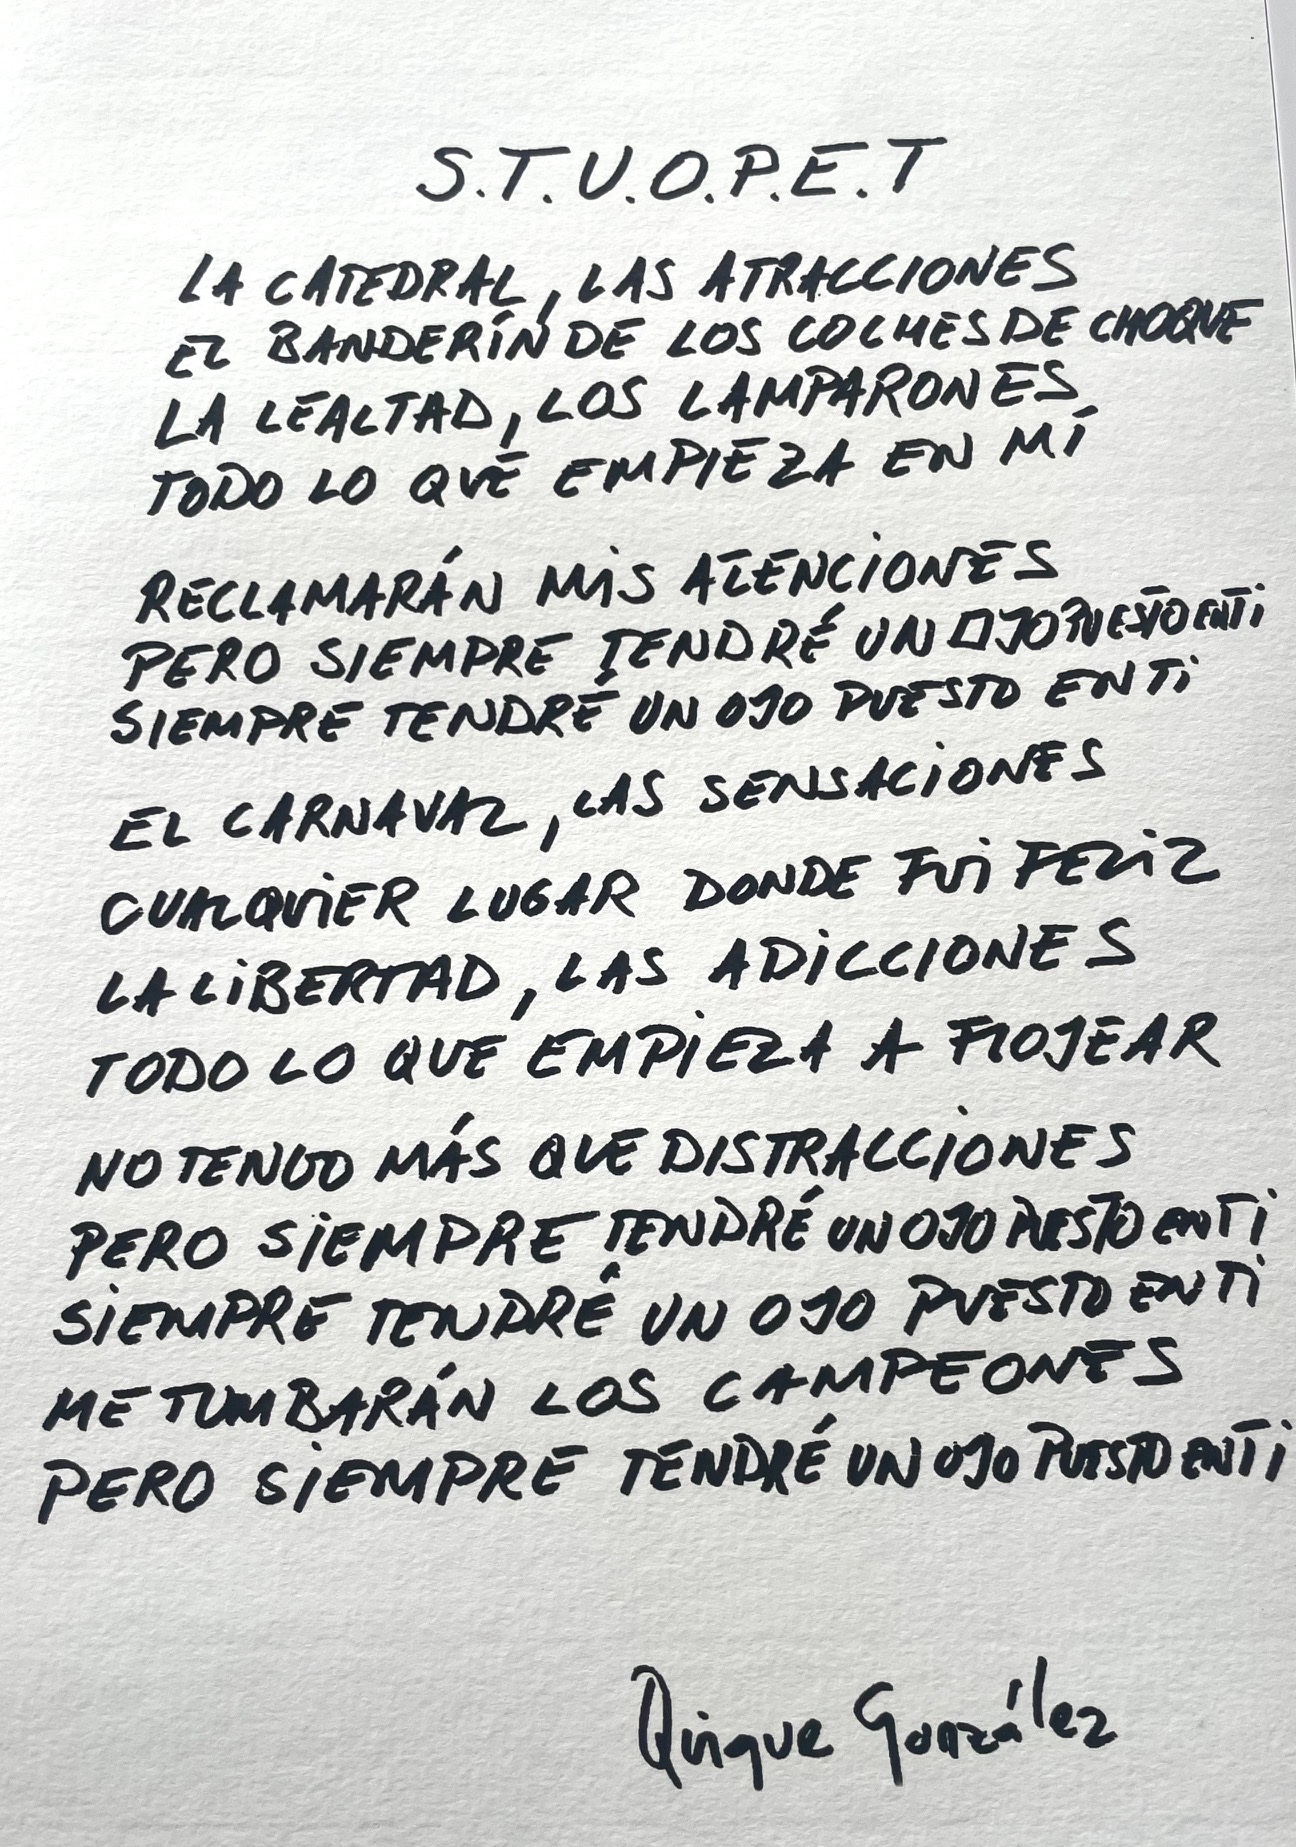 S.T.U.O.P.E.T
LA CATEDRAL, LAS ATRACCIONES
EL BANDERÍN DE LOS COCHES DE CHOQUE
LA LEALTAD, LOS LAMPARONES
TODO LO QUE EMPIEZA EN MÍ
RECLAMARÁN MIS ATENCIONES
PERO SIEMPRE TENDRÉ UN OJO PUESTO EN TI
SIEMPRE TENDRÉ UN OJO PUESTO EN TI
EL CARNAVAL, LAS SENSACIONES
CUALQUIER LUGAR DONDE FUI FELIZ
LA LIBERTAD, LAS ADICCIONES
TODO LO QUE EMPIEZA A FLOJEAR
NO TENGO MÁS QUE DISTRACCIONES
PERO SIEMPRE TENDRÉ UN OJO PUESTO EN TI
SIEMPRE TENDRÉ UN OJO PUESTO EN TI
ME TUMBARÁN LOS CAMPEONES
PERO SIEMPRE TENDRÉ UN OJO PUESTO EN TI
Quique González